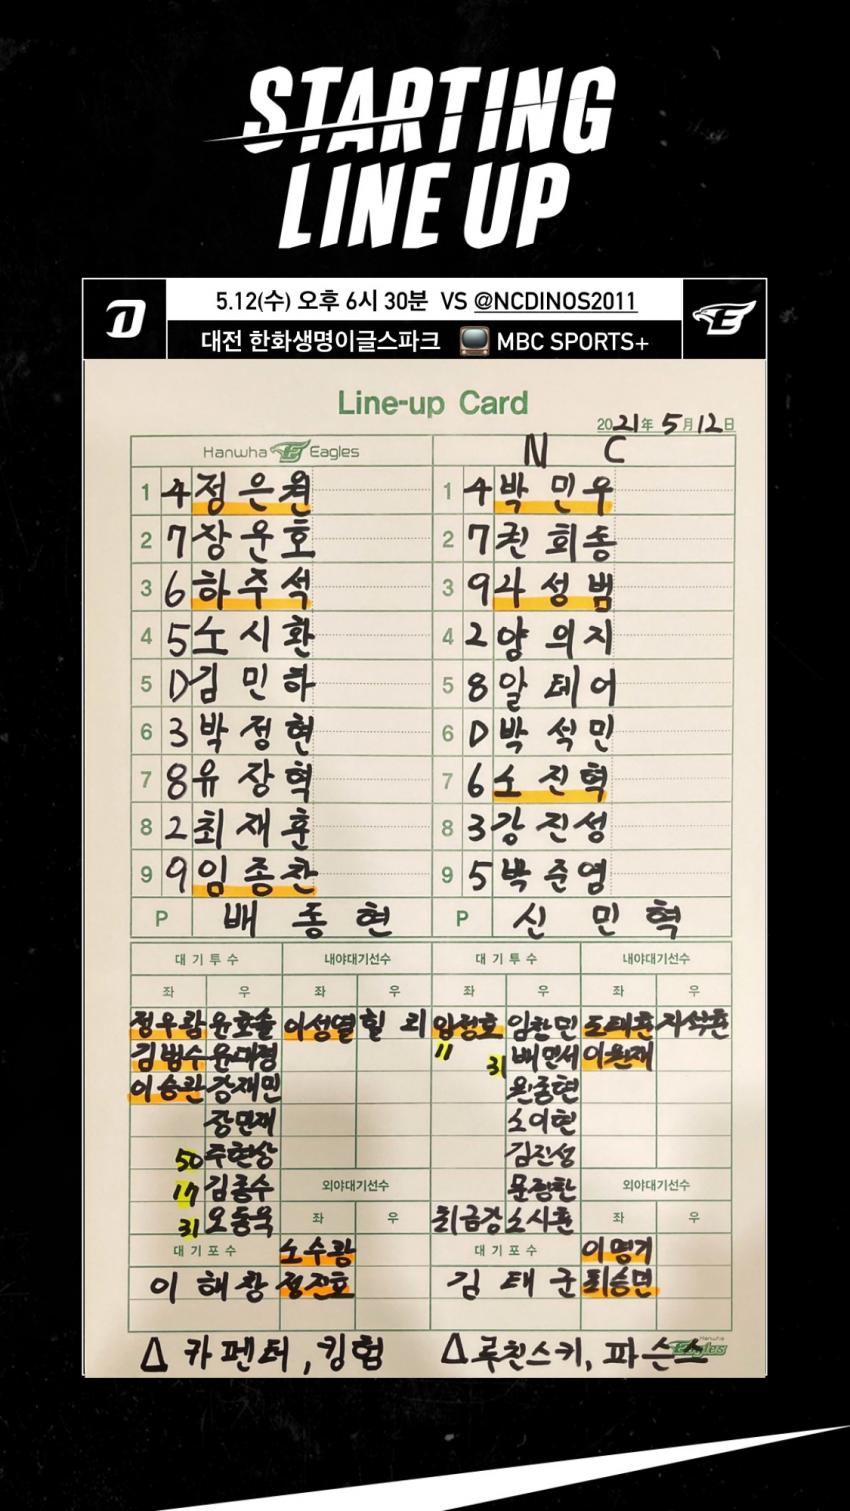 STARTING
LINE UP
5.12(수) 오후 6시 30분 VS @NCDINOS2011
대전 한화생명이글스파크 MBC SPORTS+
Line-up Card
2021年 5月 12日
Hanwha Eagles N C
1 4 정은원 1 4 박민우
2 7 장운호 2 7 권희동
3 6 하주석 3 9 나성범
4 5 노시환 4 2 양의지
5 D 김민하 5 8 알테어
6 3 박정현 6 D 박석민
7 8 유장혁 7 6 노진혁
8 2 최재훈 8 3 강진성
9 9 임종찬 9 5 박준영
P 배동현 P 신민혁
대기투수 내야대기선수 대기투수 내야대기선수
좌 우 좌 우 좌 우 좌 우
정우람 윤호솔 이성열 힐리 임정호 임창민 도태훈 지석훈
김범수 윤대경 11 31 배민서 이원재
이승관 강재민 원종현
장민재 소이현
50 주현상 김진성
17 김종수 외야대기선수 문경찬 외야대기선수
31 오동욱 좌 우 최금강 소시훈 좌 우
대기포수 노수광 대기포수 이명기
이해창 정진호 김태군 최승민
△ 카펜터, 킹험 △ 루친스키, 파슨스
Hanwha Eagles